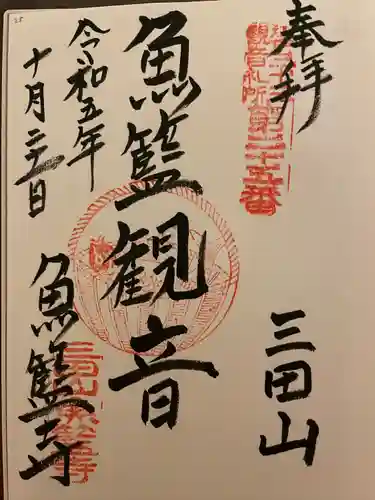 奉拝
三田山
魚籃観音
令和五年
十月二十二日
魚籃寺
観音札所第二十五番
25